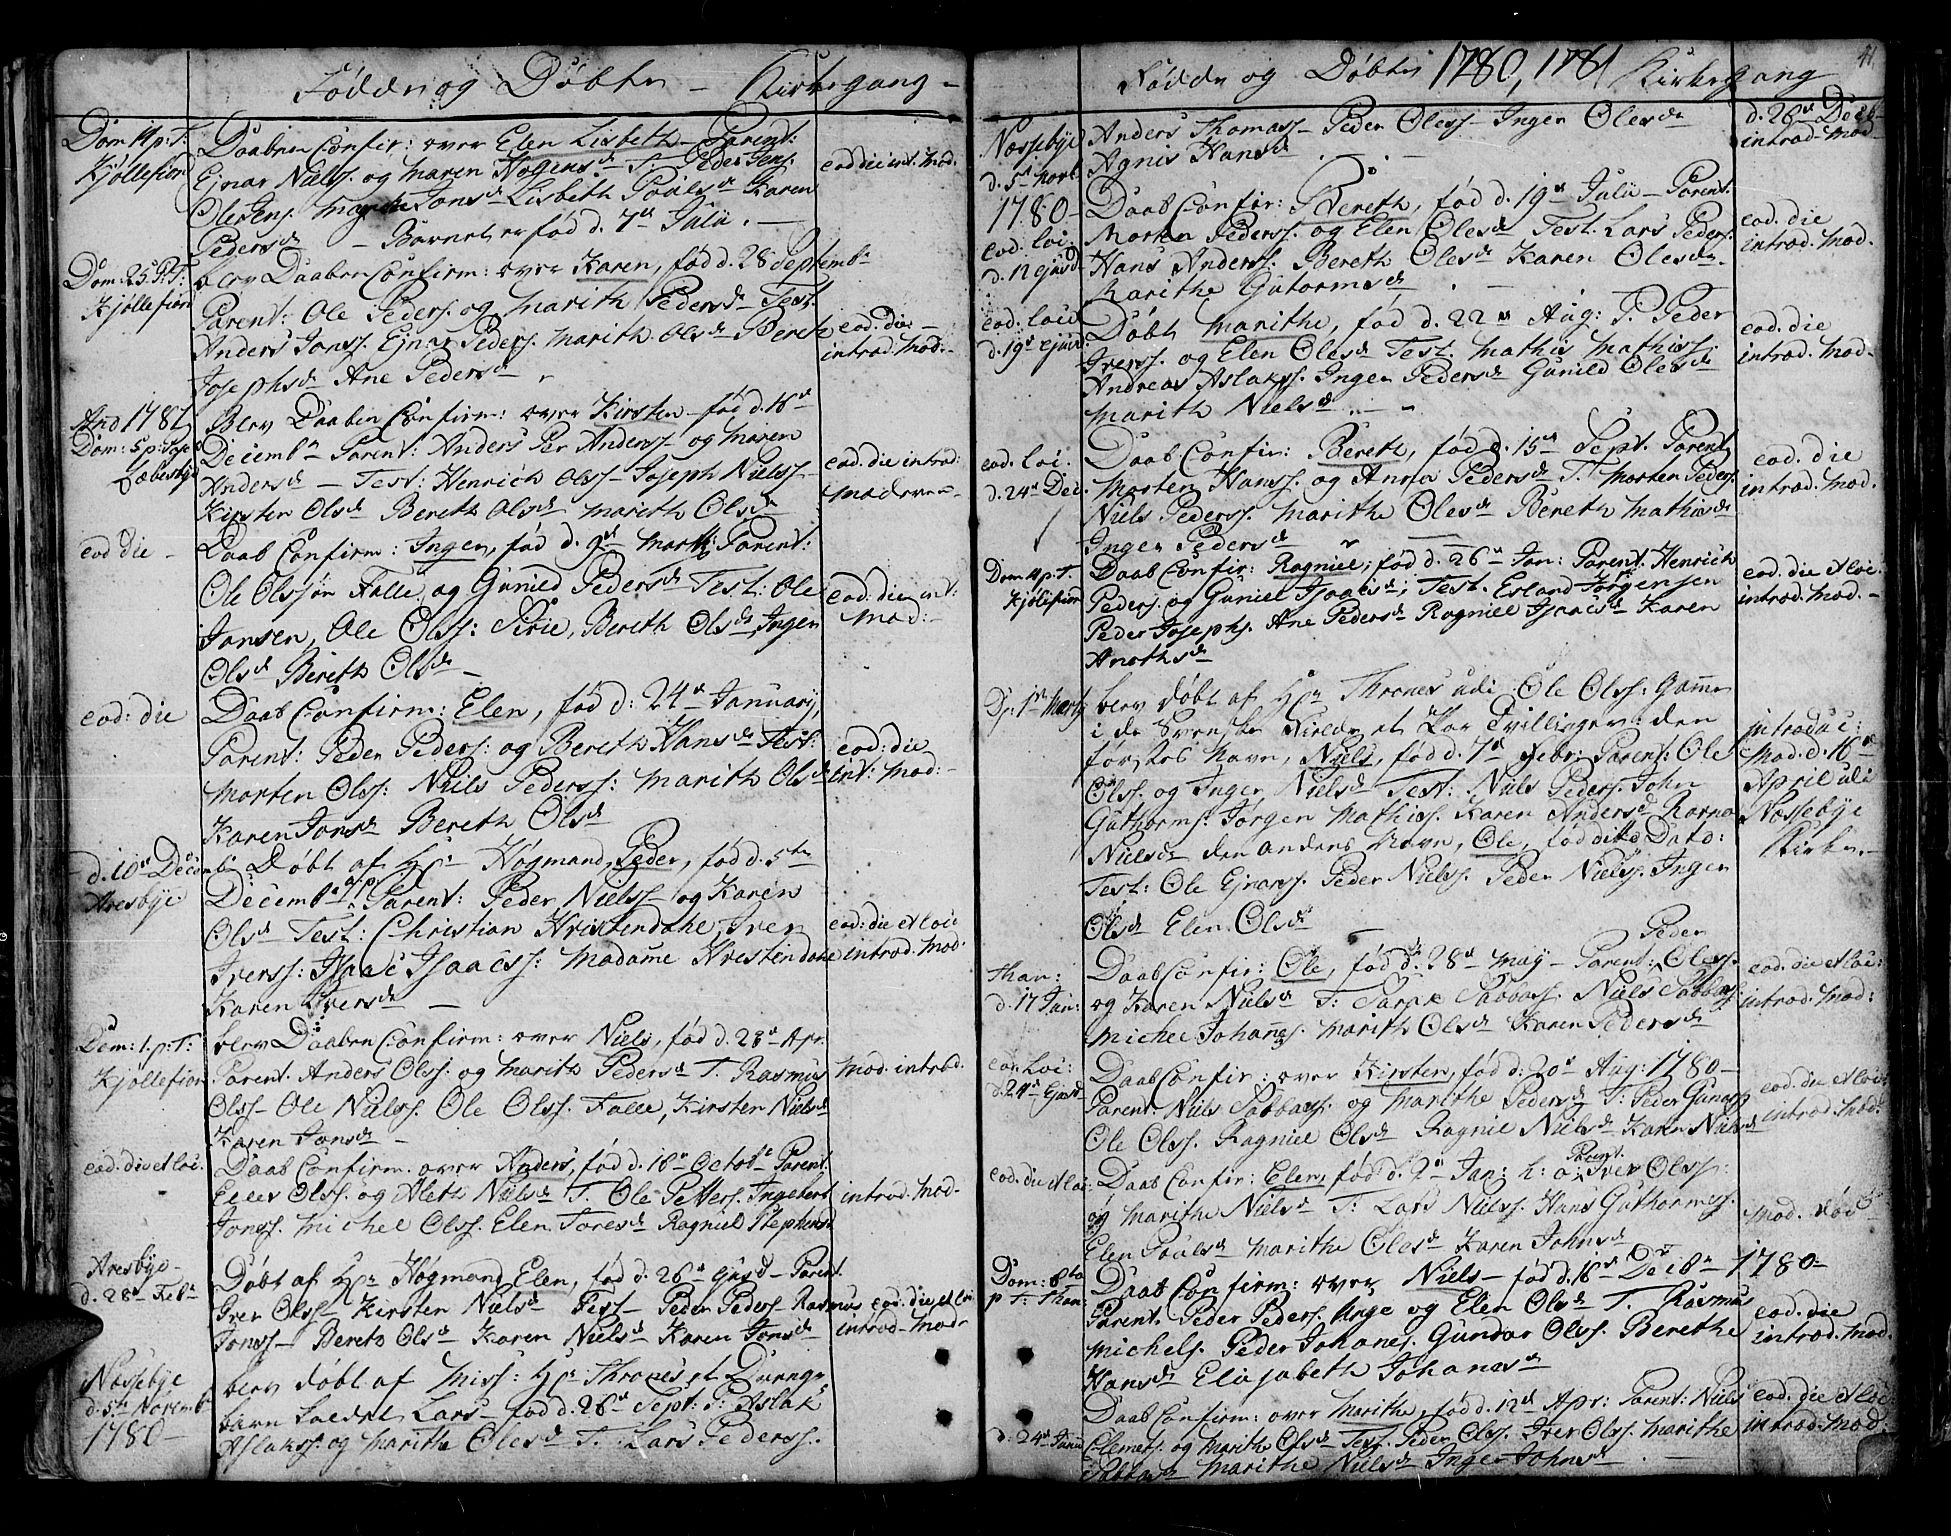 Fødde og Døbte – Kirkegang –
Dom 11 p. T:
Kjøllefiord
Daaben Confir: over Elen Lisbeth – Parent:
Ejnar Nielss. og Maren Hogensd. T. Peder Jens.
Ole Jens. Jonsd. Lisbeth Poulsd. Karen
Pedersd. – Barnet er fød d. 7de Julii. –
eod die int. Mod.
Dom: 25 P. T:
Kjøllefiord
blev Daaben Confirm: over Karen, fød d. 28 Septembr.
Parent: Ole Peders. og Marith Pedersd. Test.
Anders Jonss. Ejnar Peders. Marith Olsd. Bereth
Josephsd. Ane Pedersd.
eod: die –
introd. Mod: –
Ano 1781
Dom: 5 p:
Blev Daaben Confirm: over Kirsten – fød d. 18de
Decembr. Parent: Anders Per Anderss. og Maren
Andersd. – Test: Henrich Olss – Joseph Nielss –
Kirsten Olsd. Bereth Olsd. Marith Olsd.
eod. die introd:
Moderen –
eod die –
Daab Confirm: Ingen, fød d. 9de Parent:
Ole Olssøn Falle, og Gunild Pedersd. Test: Ole
Jansen, Ole Olss: Pirie, Bereth Olsd. Ingen
Olsd. Bereth Olsd. –
eod: die int:
Mod: –
eod: die
Daab Confirm: Elen, fød d: 24de January,
Parent: Peder Peders: og Bereth Hansd. Test:
Morten Olss: Niels Pederss: Marith Olsd.
Karen Jonsd. Bereth Olsd.
eod: die
int: Mod: –
d. 10de Decembr.
Aresbye
Døbt af Hr. Høgmand, Peder, fød d. 5te
Decembr. Parent: Peder Nielss – og Karen
Olsd. Test: Christian Kristendahe, Iver
Iverss: Isaac Isaacss: Madame Kristendahe
Karen Iversd. –
eod: die et loco
introd. Mod.
Dom: 1. p. T:
Kjøllefiord
blev Daaben Confirm: over Niels, fød d. 28de Apr.
Parent. Anders Olss. og Marith Pedersd. T. Rasmus
Olss – Ole Nielss. Ole Olss. Falle, Kirsten Nielsd.
Karen Jonsd. –
Mod. introd.
eod. die et loc.
Daab Confirm. over Anders, fød d. 18de Octobr. Parent.
Olss. og Aleth Nielsd. T. Ole Petterss. Ingebert
Jonss. Michel Olss. Elen Toresd. Ragniel Stephensd.
introd. Mod –
Aresbye –
d. 28de Febr.
Døbt af Hr. Høgmand Elen, fød d. 26de ejusd – Parent.
Iver Olss – Kirsten Nielsd. Test – Peder Pederss. Rasmus
Jonss – Bereth Olsd. Karen Nielsd. Karen Jonsd.
eod. die et loc:
introd – Mod –
Næssebye
d. 5te Novembr.
1780 –
blev døbt af Miss: Hr. Thrones et Drenge
barn kaldet Lars – fød d. 26de Sept: P: Aslak
Aslakss. og Marithe Olesd. T: Lars Pederss.
Fødde og Døbte 1780, 1781 Kirkegang
41
Næssebye
d. 5te Novb.
1780 –
Anders Thomass – Peder Oless – Ingen Olesd.
Agnis Hansd.
d. 26de Decb –
introd. Mod –
eod. loi.
d. 12 ejusd.
Daab Confir: Bereth, fød d. 19de Julii – Parent.
Morten Pederss. og Elen Olesd. Test. Lars Peders.
Hans Anderss. Bereth Olesd. Karen Olesd.
Karithe Gutormsd.
eod. die
introd. Mod.
eod: loco
d. 19de ejusd.
Døbt Marithe, fød d. 22de Aug: P. Peder
Iverss. og Elen Olesd. Test. Mathis Mathiss.
Andreas Aslakss. Ingen Pedersd. Gunild Olesd.
Marith Nielsd.
eod. die
introd. Mod.
eod. loi.
d. 24de Dec.
Daab Confir: Bereth, fød d. 15de Sept. Parent
Morten Hanss. og Anna Pedersd. T. Morten Peders.
Niels Pederss. Marithe Olesd. Bereth Mathisd.
Ingen Pedersd.
eod. die
introd. Mod.
Dom 4 p. T.
Kjøllefiord
Daab Confir: Ragniel, fød d. 26de Jan: Parent. Henrich
Peders. og Guniel Isaacsd; Test. Erland Jørgensen
Peder Josephs. Ane Pedersd. Ragniel Isaacsd. Karen
eod: die et loc.
introd. Mod. –
D. 1de Marty
blev døbt af Hr. Thrones udi Ole Olss: Gamme
i de Svenske et Par Tvillinger: den
førstes Navn, Niels, fød d. 7de Febr. Parent: Ole
Olss. og Ingen Nielsd. Test: Niels Pederss. John
Guthorms. Jørgen Mathiss. Karen Andersd. Karna
Nielsd. den andens Navn, Ole, fød ditto Dato:
Test: Ole Ejnarss. Peder Nielss. Peder Nielss. Ingen
Olsd. Elen Olsd. –
introduc:
Mod. d. 16de
April udi
Næssebye
Kirke. –
Than:
d. 17 Jan:
Peder
Daab Confir: Ole, fød d. 28de May – Parent: Oless.
og Karen Nielsd. T: Sabbass. Niels Sabbass.
Michel Johanes. Marith Olsd. Karen Pedersd.
eod: die et loi:
introd. Mod:
eod. Loi:
d. 24de Ejusd.
Daab Confir: over Kirsten, fød d: 20de Aug: 1780 –
Parent: Niels Sabbass. og Marithe Pedersd. T: Peder
Ole Olss. Ragniel Olsd. Ragniel Nielsd. Karen Nielsd.
eod: die et loi:
introd. Mod:
eod. die et loi:
Parent.
Daab Confir: Elen, fød d. 2de Jan: h: a: Iver Olss:
og Marithe Nielsd. T: Lars Nielss. Hans Guthormss.
Elen Poulsd. Marithe Olesd. Karen Johnsd.
Mod. død
Dom: 6te
p T: Than:
Daab Confirm: over Niels – fød d. 18de Decbr. 1780 –
Parent. Peder Peders. Unge og Elen Olsd. T. Rasmus
Michels. Peder Johanes. Gunder Olss. Berethe
Hansd. Elisabeth Johanesd.
eod: die
introd. Mod.
d. 24de Junii
Daab Confirm: over Marithe, fød d. 12de Apr: Parent: Niels
Clemets. og Marith Olsd. Test. Peder Olss. Iver Olss. Marithe
Sabbasd. Marithe Nielsd. Ingen Johnsd. –
eod. die et loi:
introd. Mod: